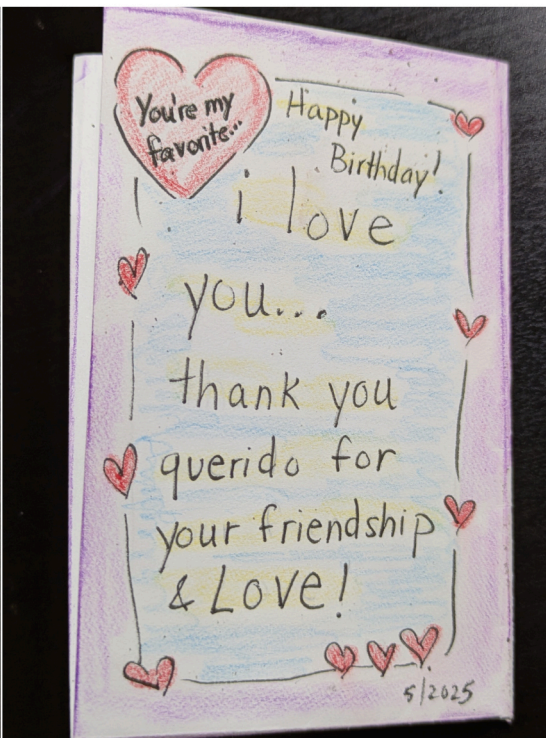 You're my
favorite...
Happy
Birthday!
i love
you...
thank you
querido for
your friendship
& Love!
5/2025